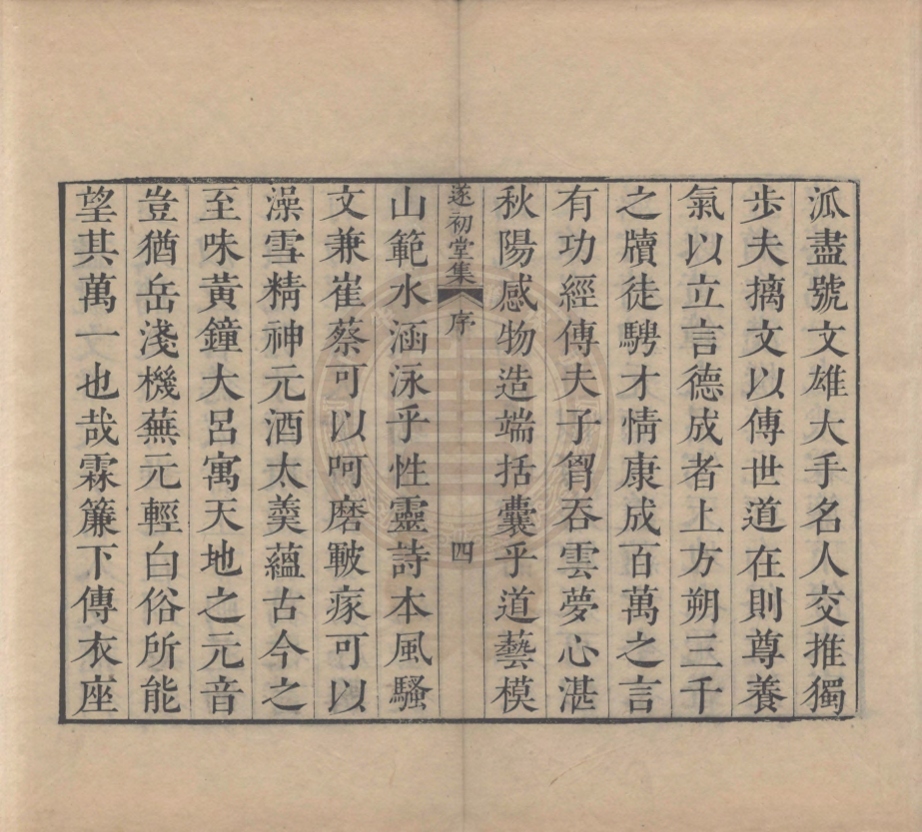 泒盡號文雄大手名人交推獨
步夫摛文以傳世道在則尊養
氣以立言德成者上方朔三千
之牘徒騁才情康成百萬之言
有功經傳夫子胷吞雲夢心湛
秋陽感物造端括囊乎道藝模
遂初堂集 序 四
山範水涵泳乎性靈詩本風騷
文兼崔蔡可以呵磨皸瘃可以
澡雪精神元酒太羹蘊古今之
至味黃鐘大呂寓天地之元音
豈猶岳淺機蕪元輕白俗所能
望其萬一也哉霖簾下傳衣座